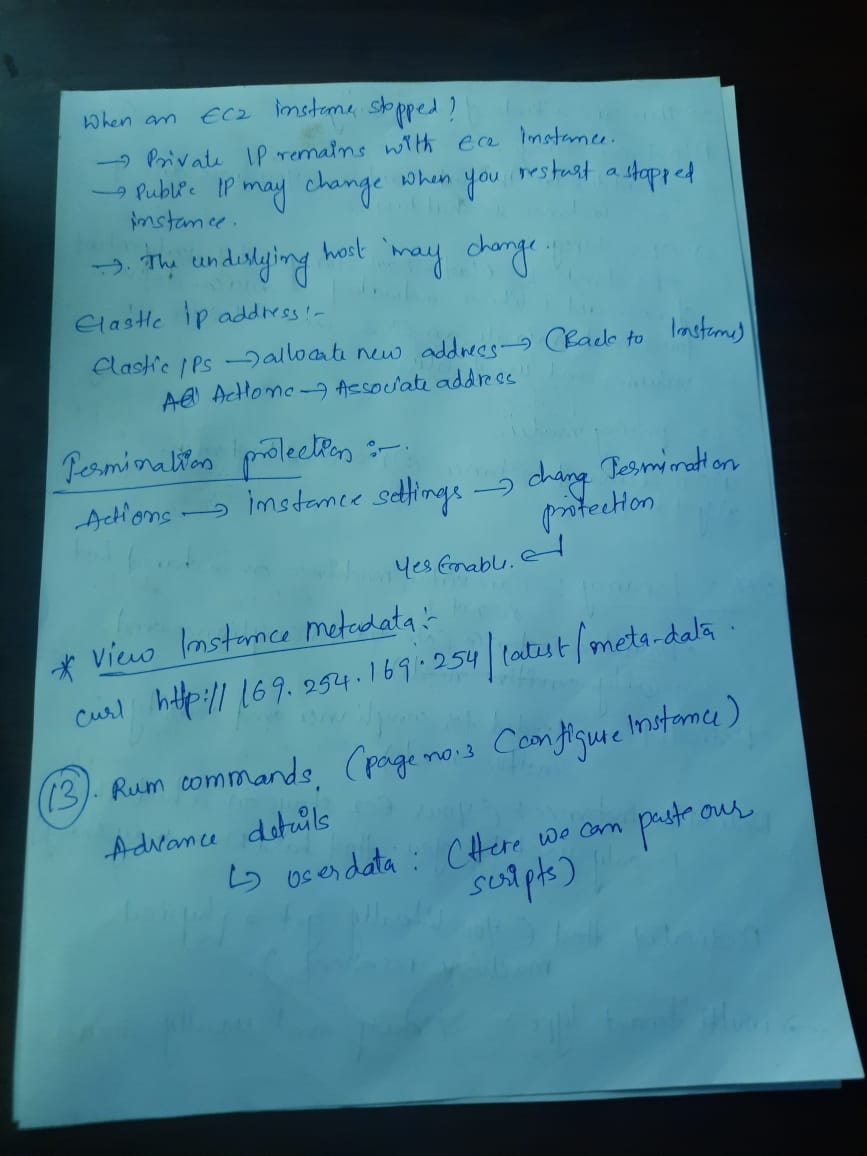 When an EC2 instance stopped?
→ Private IP remains with EC2 Instance.
→ Public IP may change when you restart a stopped
instance.
→. The underlying host may change.
Elastic ip address:-
Elastic IPs → allocate new address → (Back to Instance)
Actions → Associate address
Termination protection :-.
Actions → instance settings → chang Termination
protection
Yes Enable. ↵
* View Instance metadata:-
curl http://169.254.169.254/latest/meta-data.
(13). Run commands. (page no:3 (configure Instance)
Advance details
↳ userdata : (Here we can paste our
scripts)